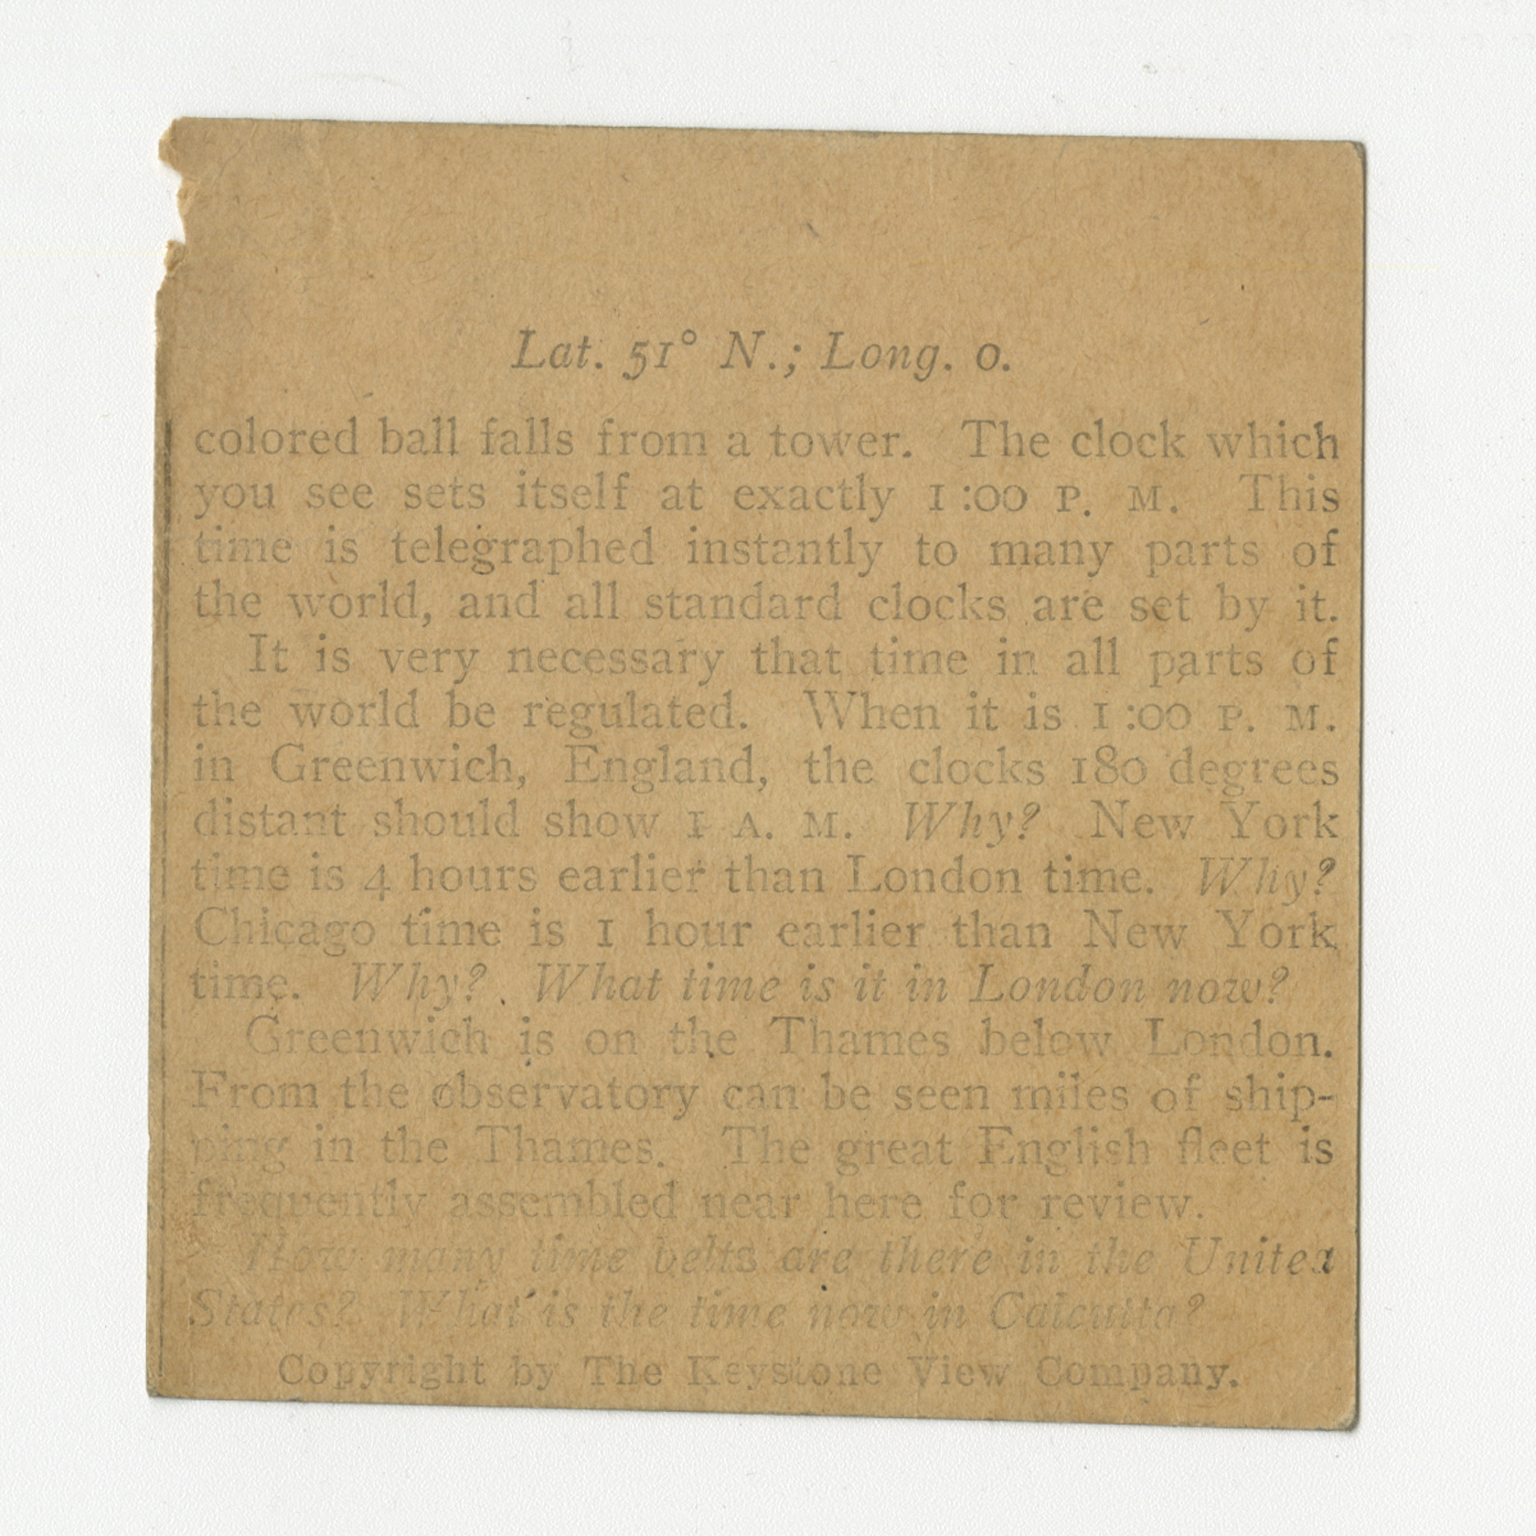 Lat. 51° N.; Long. 0.
colored ball falls from a tower. The clock which
you see sets itself at exactly 1:00 P. M. This
time is telegraphed instantly to many parts of
the world, and all standard clocks are set by it.
It is very necessary that time in all parts of
the world be regulated. When it is 1:00 P. M.
in Greenwich, England, the clocks 180 degrees
distant should show 1 A. M. Why? New York
time is 4 hours earlier than London time. Why?
Chicago time is 1 hour earlier than New York
time. Why? What time is it in London now?
Greenwich is on the Thames below London.
From the observatory can be seen miles of ship-
ping in the Thames. The great English fleet is
frequently assembled near here for review.
How many time belts are there in the United
States? What is the time now in Calcutta?
Copyright by The Keystone View Company.